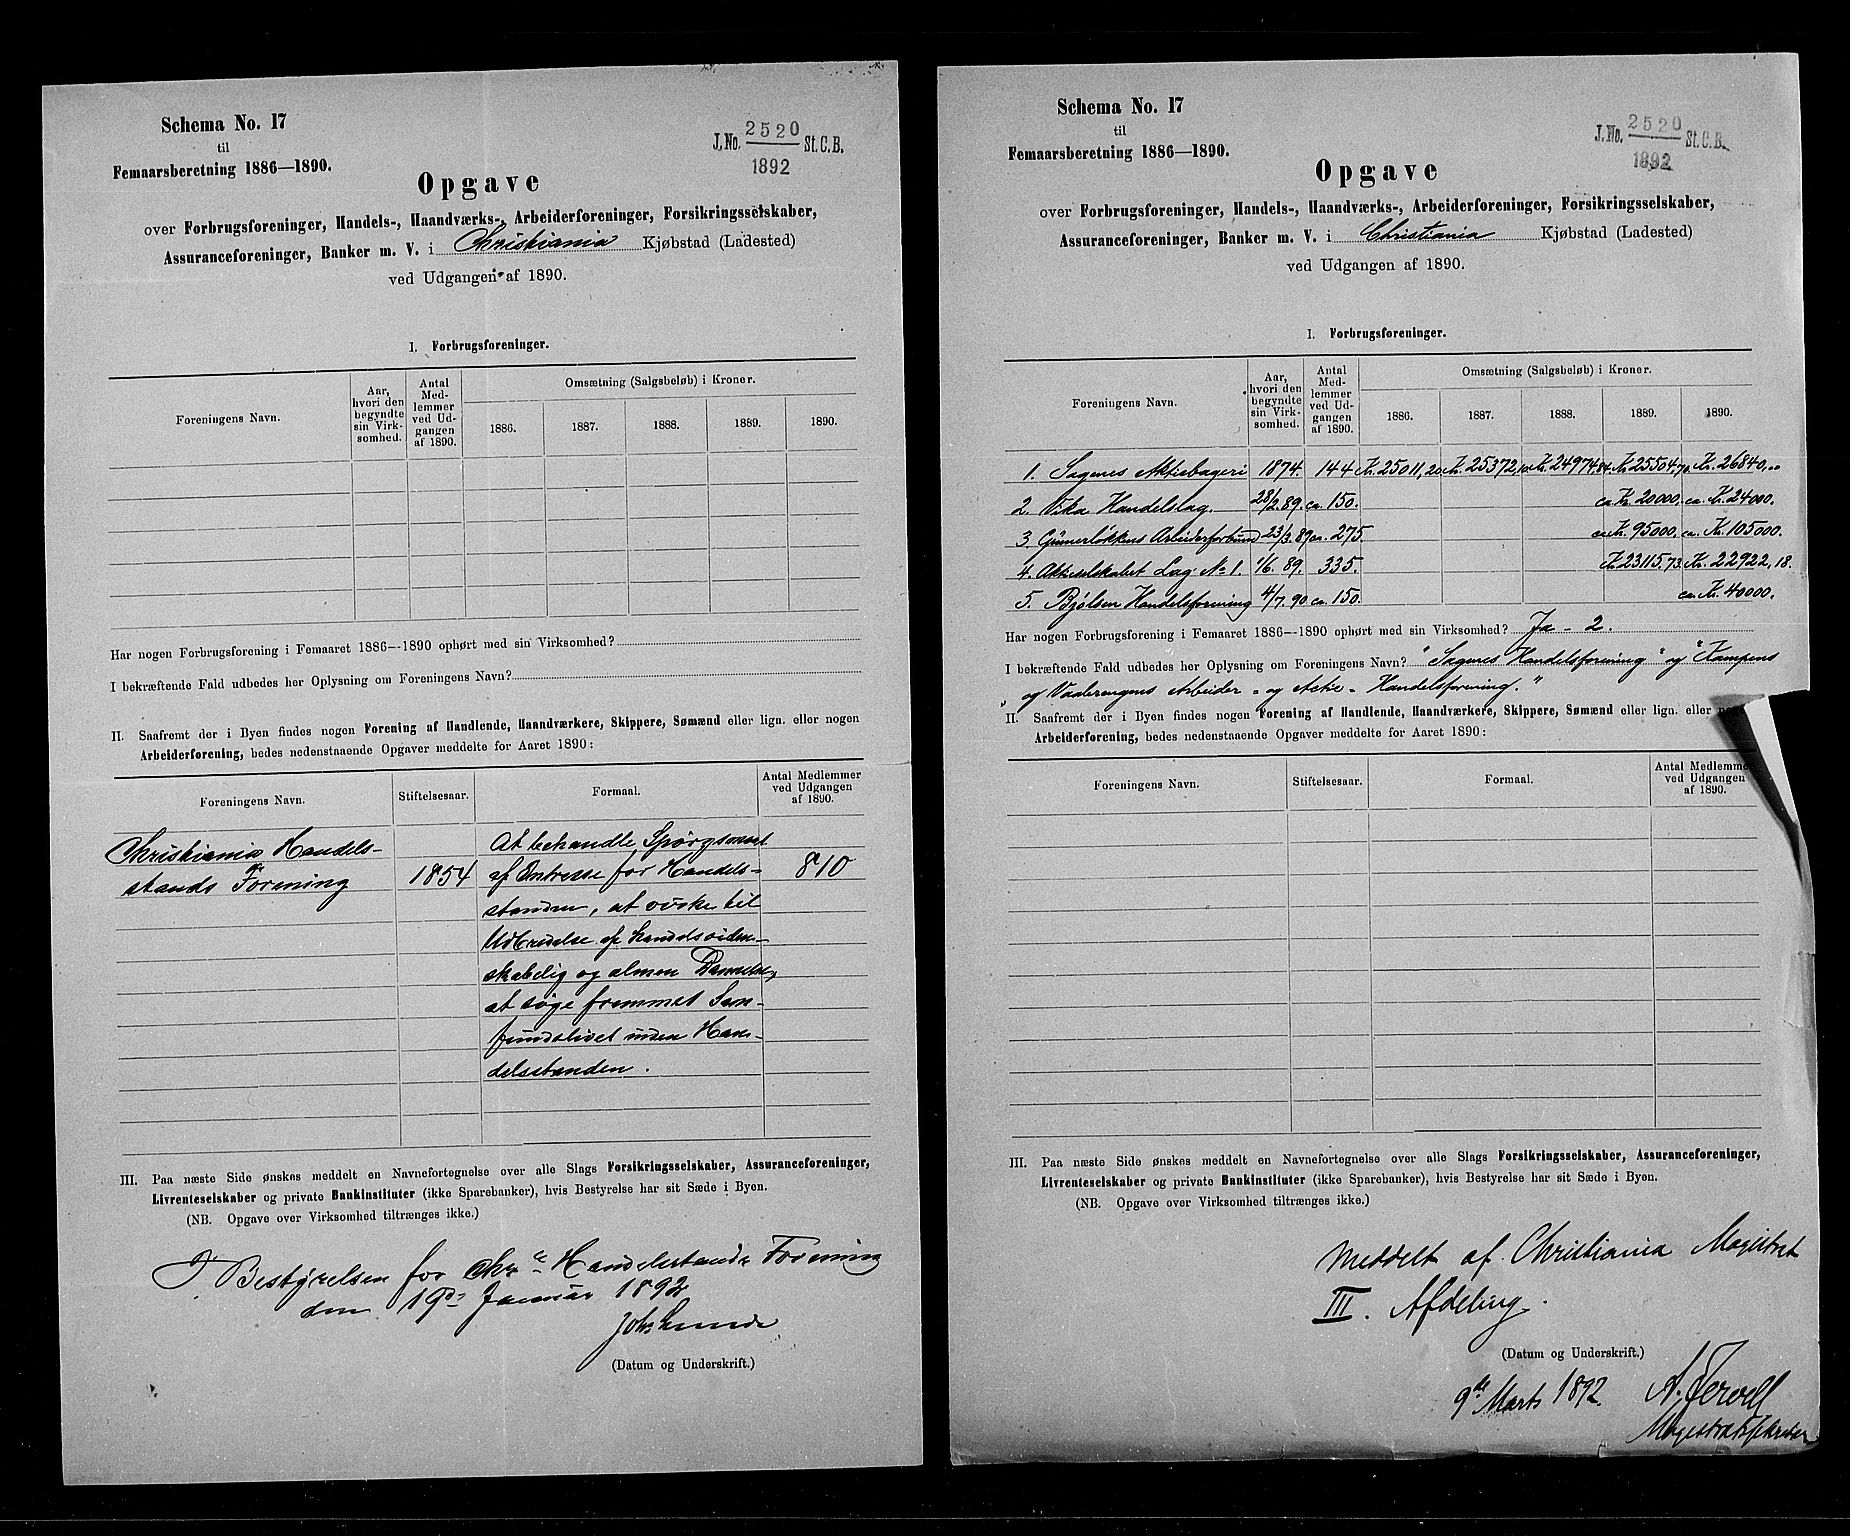 Schema No. 17
til
Femaarsberetning 1886—1890.
J. No. 2520 St. C. B.
1892
Opgave
over Forbrugsforeninger, Handels-, Haandværks-, Arbeiderforeninger, Forsikringsselskaber,
Assuranceforeninger, Banker m. V. i Christiania Kjøbstad (Ladested)
ved Udgangen af 1890.
I. Forbrugsforeninger.
Foreningens Navn.
Aar, hvori den begyndte sin Virksomhed.
Antal Medlemmer ved Udgangen af 1890.
Omsætning (Salgsbeløb) i Kroner.
1886. 1887. 1888. 1889. 1890.
Har nogen Forbrugsforening i Femaaret 1886—1890 ophørt med sin Virksomhed?
I bekræftende Fald udbedes her Oplysning om Foreningens Navn?
II. Saafremt der i Byen findes nogen Forening af Handlende, Haandværkere, Skippere, Sømænd eller lign. eller nogen
Arbeiderforening, bedes nedenstaaende Opgaver meddelte for Aaret 1890:
Foreningens Navn. Stiftelsesaar. Formaal. Antal Medlemmer
ved Udgangen
af 1890.
Christiania Handels- At behandle Spørgsmaal
stands Forening 1854 af Interesse for Handels- 810
standen, at virke til
Udbredelse af handelsviden-
skabelig og almen Dannelse,
at søge fremmet Sam-
fundslivet inden Han-
delsstanden.
III. Paa næste Side ønskes meddelt en Navnefortegnelse over alle Slags Forsikringsselskaber, Assuranceforeninger,
Livrenteselskaber og private Bankinstituter (ikke Sparebanker), hvis Bestyrelse har sit Sæde i Byen.
(NB. Opgave over Virksomhed tiltrænges ikke.)
I Bestyrelsen for Chr.a Handelsstands Forening
den 19de Januar 1892
Johs Lunde
(Datum og Underskrift.)
Schema No. 17
til
Femaarsberetning 1886—1890.
J. No. 2520 St. C. B.
1892
Opgave
over Forbrugsforeninger, Handels-, Haandværks-, Arbeiderforeninger, Forsikringsselskaber,
Assuranceforeninger, Banker m. V. i Christiania Kjøbstad (Ladested)
ved Udgangen af 1890.
I. Forbrugsforeninger.
Foreningens Navn.
Aar, hvori den begyndte sin Virksomhed.
Antal Medlemmer ved Udgangen af 1890.
Omsætning (Salgsbeløb) i Kroner.
1886. 1887. 1888. 1889. 1890.
1. Sagenes Aktiebageri 1874. 144 Kr. 25011,20 Kr. 25372,10 Kr. 24974,84 Kr. 25504,70 Kr. 26840,00
2. Vika Handelslag. 28/2.89. ca. 150. ca. Kr. 20000. ca. Kr. 24000.
3. Grünerløkkens Arbeiderforbund 23/3.89 ca. 275. ca. Kr. 95000. ca. Kr. 105000.
4. Aktieselskabet Lag No 1. 1/6. 89. 335. Kr. 23115,73 Kr. 22922,18.
5. Bjølsen Handelsforening 4/7. 90 ca. 150. ca. Kr. 40000.
Har nogen Forbrugsforening i Femaaret 1886—1890 ophørt med sin Virksomhed? Ja - 2.
I bekræftende Fald udbedes her Oplysning om Foreningens Navn? "Sagenes Handelsforening" og "Kampens
og Vaalerengens Arbeider- og Actie- Handelsforening."
II. Saafremt der i Byen findes nogen Forening af Handlende, Haandværkere, Skippere, Sømænd eller lign. eller nogen
Arbeiderforening, bedes nedenstaaende Opgaver meddelte for Aaret 1890:
Foreningens Navn. Stiftelsesaar. Formaal. Antal Medlemmer
ved Udgangen
af 1890.
III. Paa næste Side ønskes meddelt en Navnefortegnelse over alle Slags Forsikringsselskaber, Assuranceforeninger,
Livrenteselskaber og private Bankinstituter (ikke Sparebanker), hvis Bestyrelse har sit Sæde i Byen.
(NB. Opgave over Virksomhed tiltrænges ikke.)
Meddelt af Christiania Magistrat
III. Afdeling.
(Datum og Underskrift.)
9de Marts 1892.
Magistratssekretær